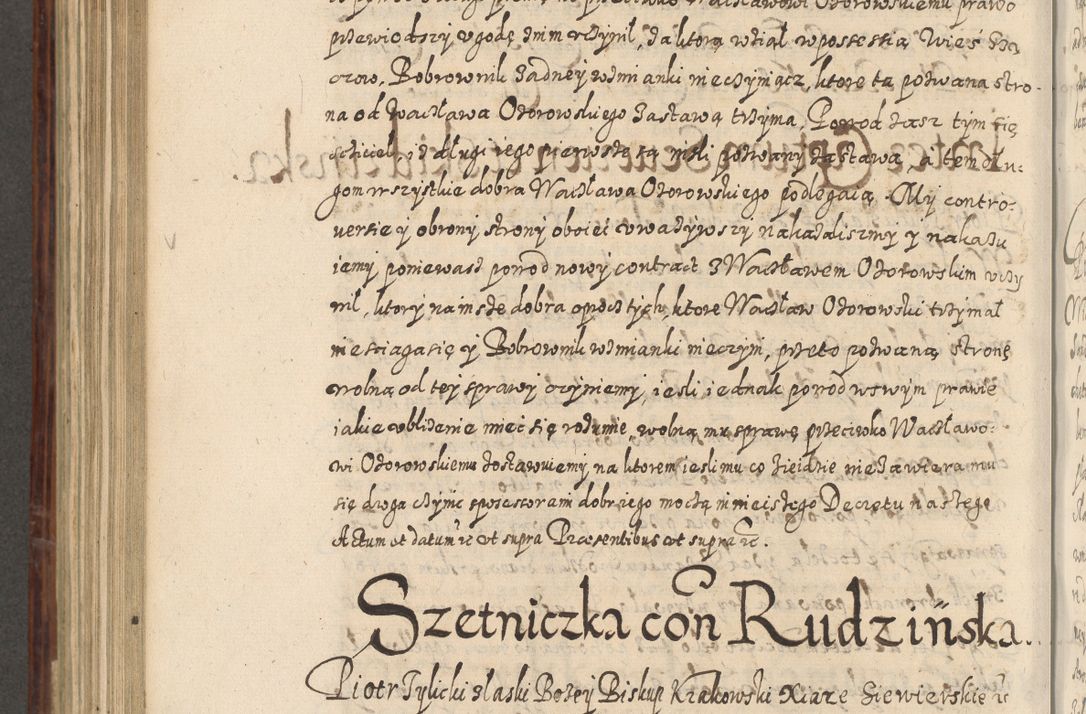 przewiodszy ugodę znim uczynił, za ktorą wziął w possessią Wieś
Bobrownik żadney wzmianki nieczyniącz, ktore ta pozwana stro-
na od Wacława Ożorowskiego zastawą trzyma, Pozwod zasz tym się
gom wszystkie dobra Wacława Ożorowskiego podlegaią. My contro-
versie y obrony strony oboiei uwazywszy nakazalismy y nakazu
iemy, poniewasz powod nowy contract z Wacławem Ożorowskim uczy
nił, ktory na insze dobra oprocz tych, ktore Wacław Ożorowski trzymał
nie sciaga się y Bobrownik wzmianki nieczyni, przeto pozwaną stronę
wolną od tey sprawy czyniemy, iesli iednak powod w swym prawie
iakie ubliżenie mieć się rozumie, wolną mu sprawę przeciwko Wacławo-
wi Ożorowskiemu zostawuiemy, na ktorem iesli mu co zieidzie nie zawiera mu
się droga czynić sposessorami dobr iego moczą ninieiszego Decretu naszego
Actum et datum ut supra Præsentibus ut supra etc.
Szetniczka con Rudzińska.
Piotr Tylicki z łaski Bozey Biskup Krakowski Xiąze Siewierskie etc